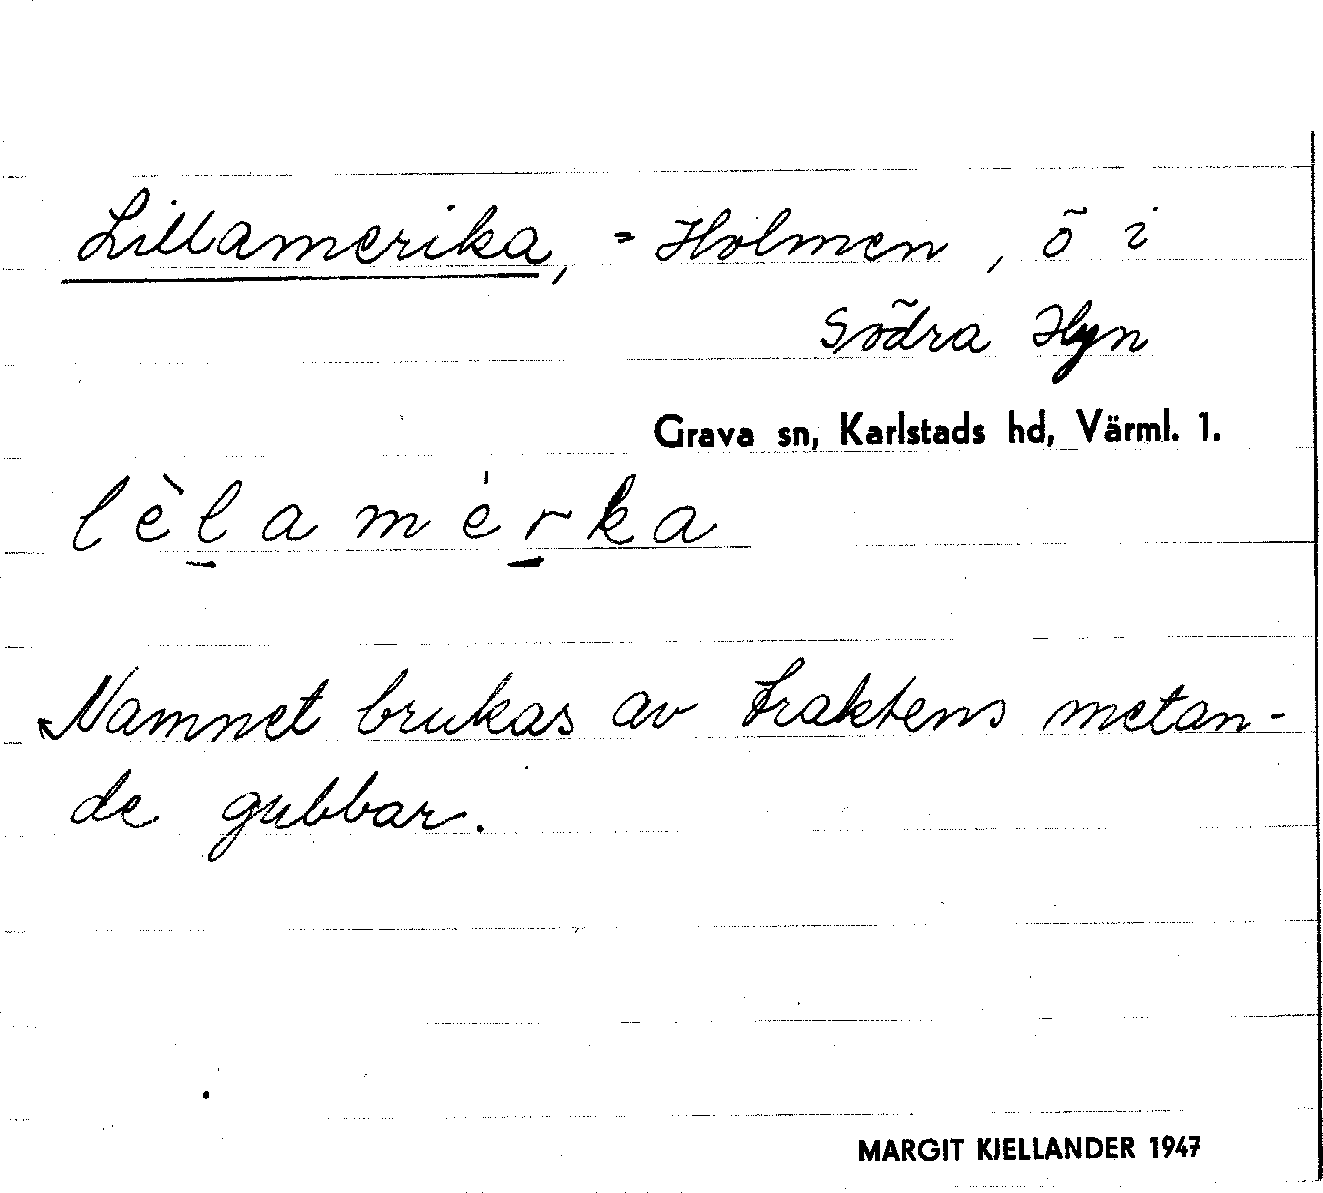 Lillamerika, = Holmen, ö i
Södra Hyn
Grava sn, Karlstads hd, Värml. 1.
lèl̠amér̠ka
Namnet brukas av traktens metan-
de gubbar.
MARGIT KJELLANDER 1947